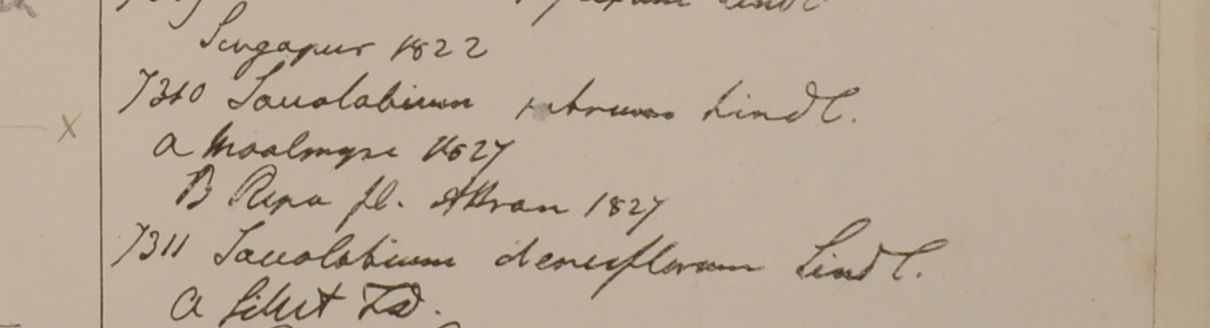 Lindl
Singapur 1822
7310 Saccolabium rubrum Lindl.
a Moalmyne 1827
B Ripa fl. Attran 1827
7311 Saccolabium densiflorum Lindl.
a Silhet